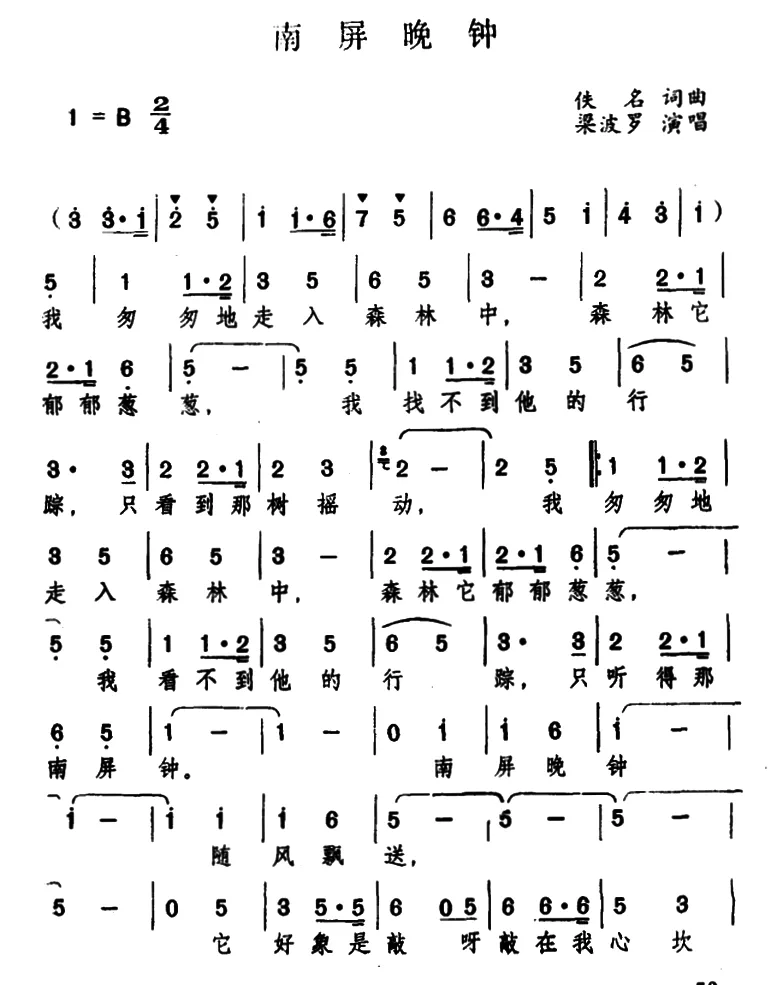 南屏晚钟
1 = B 2/4
佚名 词曲
梁波罗 演唱
( 3 3·1 | 2 5 | 1 1·6 | 7 5 | 6 6·4 | 5 1 | 4 3 | 1 )
5 | 1 1·2 | 3 5 | 6 5 | 3 － | 2 2·1 |
我 匆 匆地走入 森林 中， 森 林它
2·1 6 | 5 － | 5 5 | 1 1·2 | 3 5 | 6 5 |
郁郁葱 葱， 我 找不到他的行
3· 3 | 2 2·1 | 2 3 | 3 2 － | 2 5 |: 1 1·2 |
踪，只看到那树摇 动， 我 匆匆地
3 5 | 6 5 | 3 － | 2 2·1 | 2·1 6 | 5 － |
走入 森林 中， 森林它郁郁葱葱，
5 5 | 1 1·2 | 3 5 | 6 5 | 3· 3 | 2 2·1 |
我 看不到他的 行 踪，只听得那
6 5 | 1 － | 1 － | 0 1 | 1 6 | 1 － |
南屏 钟。 南 屏晚 钟
1 － | 1 1 | 1 6 | 5 － | 5 － | 5 － | 5 － |
随 风飘 送，
5 － | 0 5 | 3 5·5 | 6 0 5 | 6 6·6 | 5 3 |
它 好象是敲 呀敲在我心坎